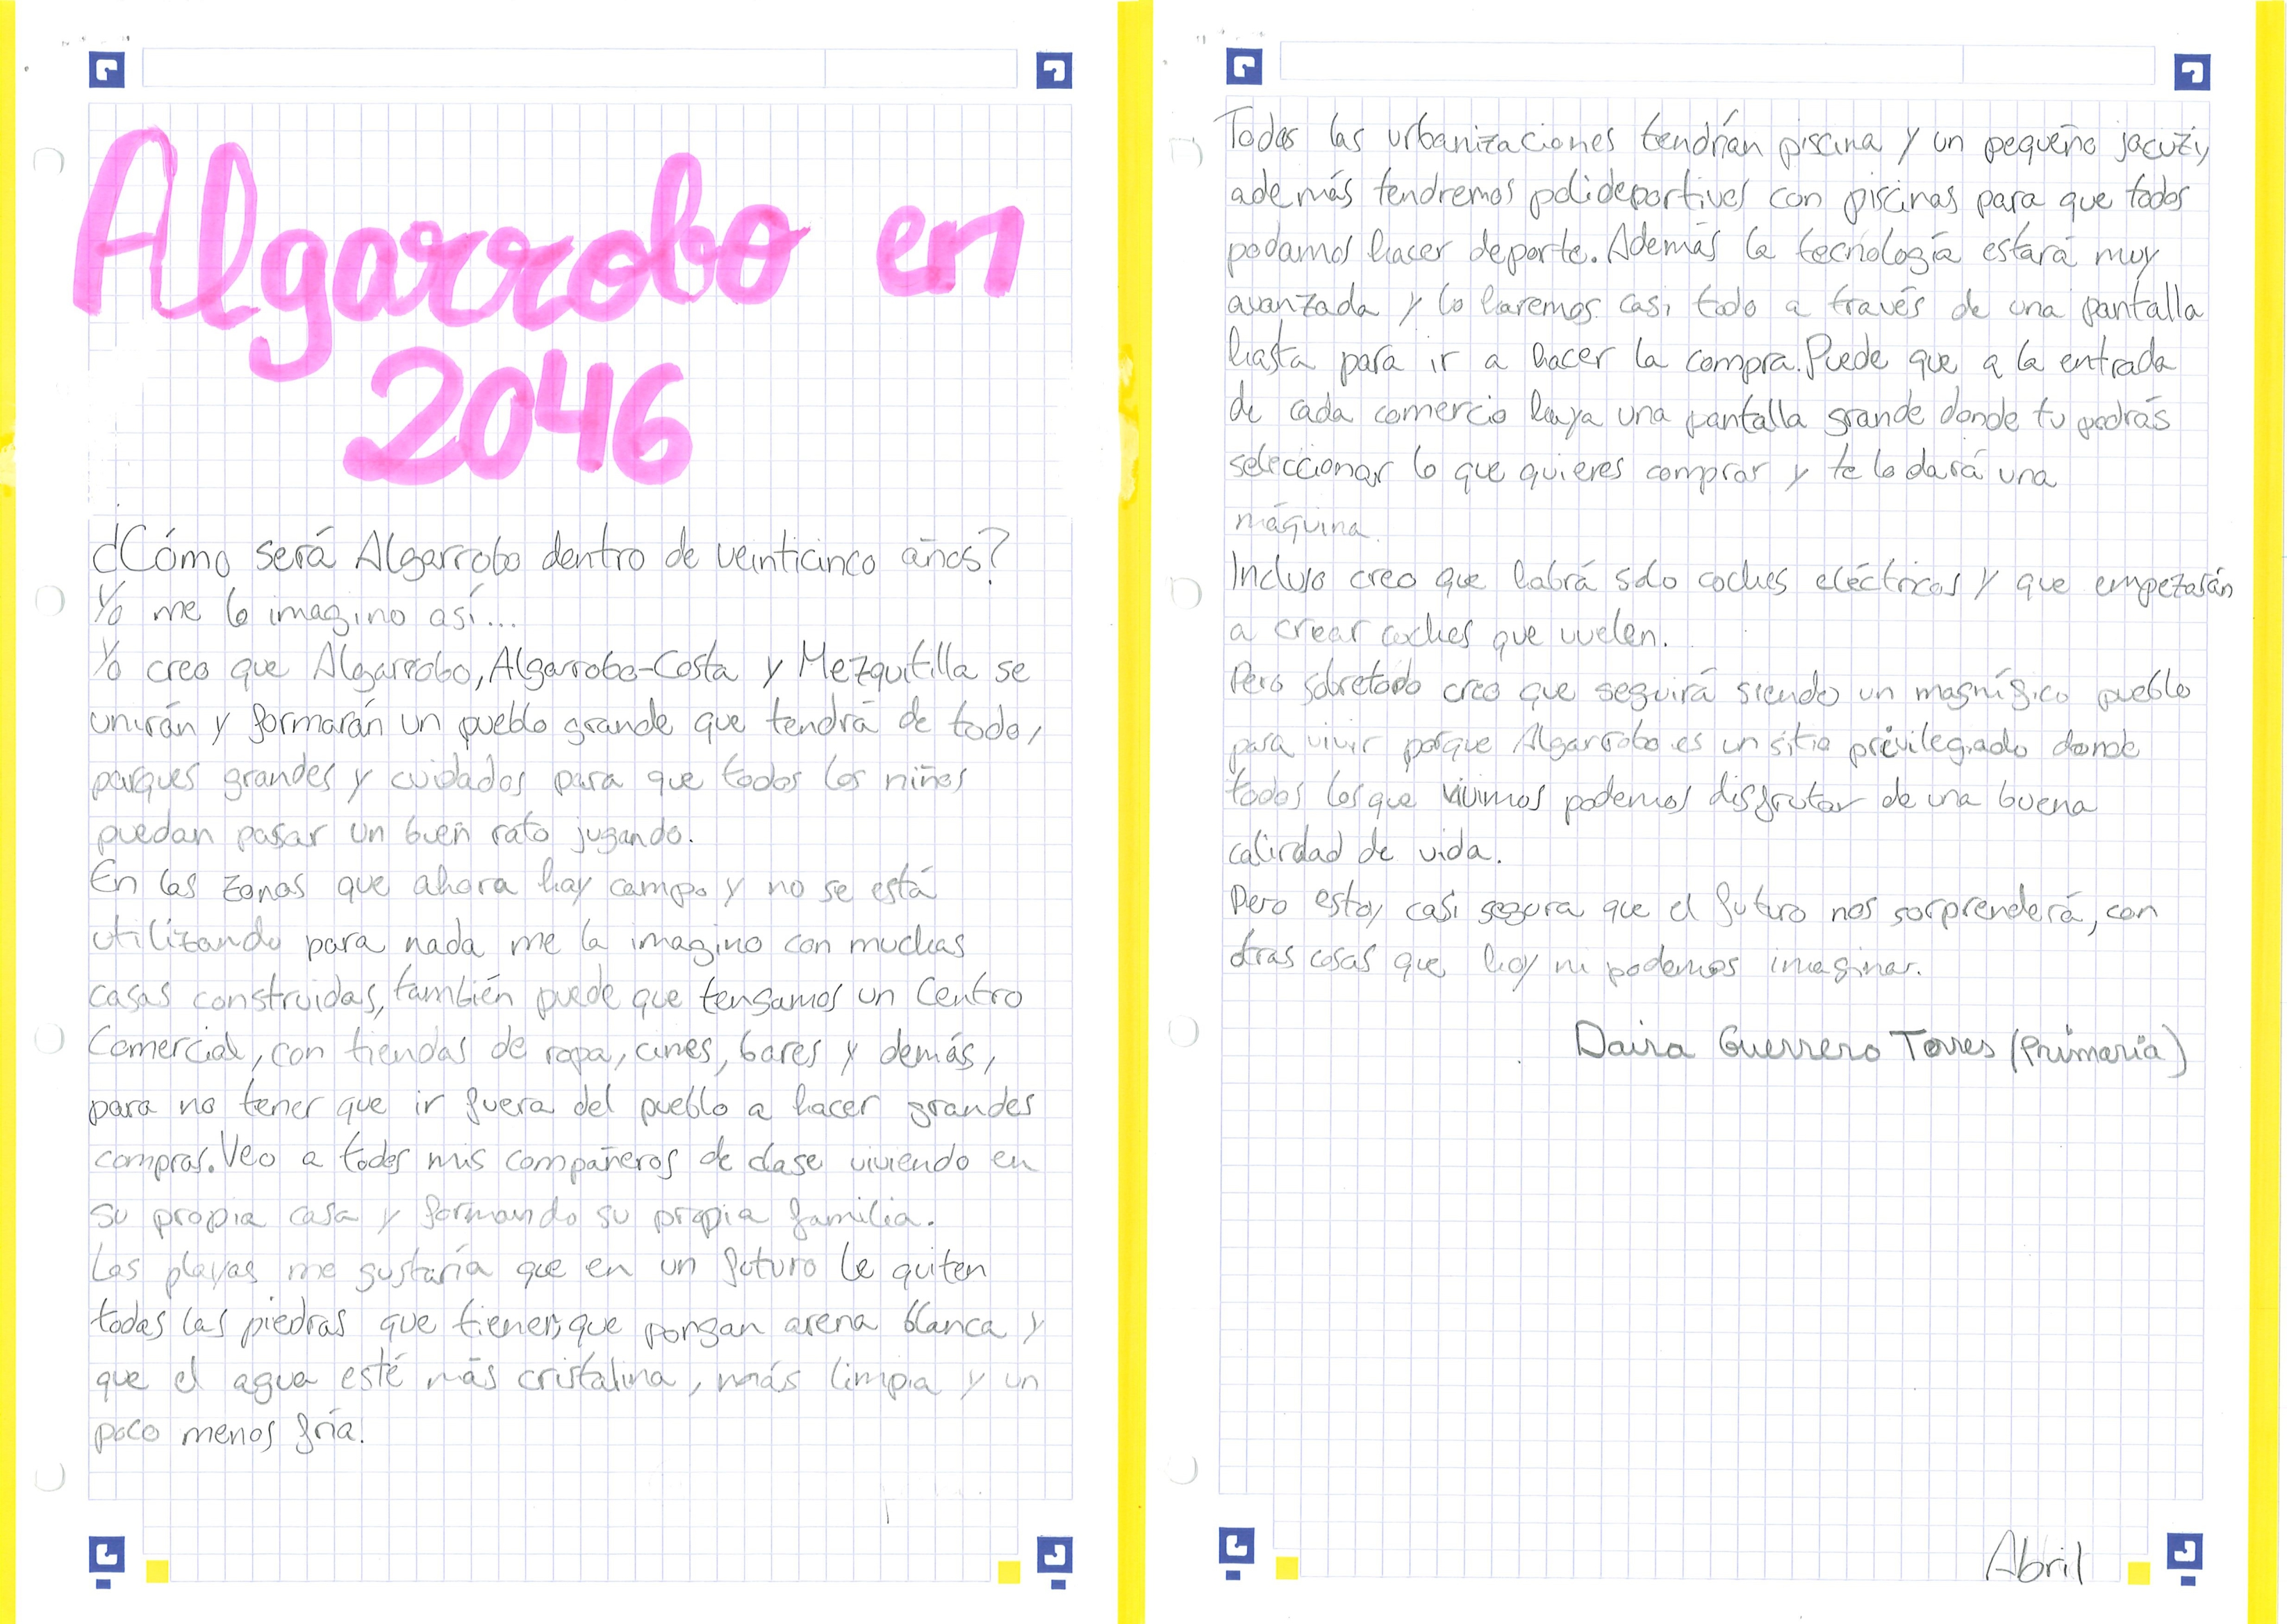 Algarrobo en
2046
¿Cómo será Algarrobo dentro de veinticinco años?
Yo me lo imagino así...
Yo creo que Algarrobo, Algarrobo-Costa y Mezquitilla se
unirán y formarán un pueblo grande que tendrá de todo,
parques grandes y cuidados para que todos los niños
puedan pasar un buen rato jugando.
En las zonas que ahora hay campo y no se está
utilizando para nada me la imagino con muchas
casas construidas, también puede que tengamos un Centro
Comercial, con tiendas de ropa, cines, bares y demás,
para no tener que ir fuera del pueblo a hacer grandes
compras. Veo a todos mis compañeros de clase viviendo en
su propia casa y formando su propia familia.
Las playas me gustaría que en un futuro le quiten
todas las piedras que tienen, que pongan arena blanca y
que el agua esté más cristalina, más limpia y un
poco menos fría.
Todas las urbanizaciones tendrían piscina y un pequeño jacuzi,
además tendremos polideportivos con piscinas para que todos
podamos hacer deporte. Además la tecnología estará muy
avanzada y lo haremos casi todo a través de una pantalla
hasta para ir a hacer la compra. Puede que a la entrada
de cada comercio haya una pantalla grande donde tu podrás
seleccionar lo que quieres comprar y te lo dará una
máquina.
Incluso creo que habrá solo coches eléctricos y que empezarán
a crear coches que vuelen.
Pero sobretodo creo que seguirá siendo un magnífico pueblo
para vivir porque Algarrobo es un sitio privilegiado donde
todos los que vivimos podemos disfrutar de una buena
calirdad de vida.
Pero estoy casi segura que el futuro nos sorprenderá, con
otras cosas que hoy ni podemos imaginar.
Daira Guerrero Torres (Primaria)
Abril